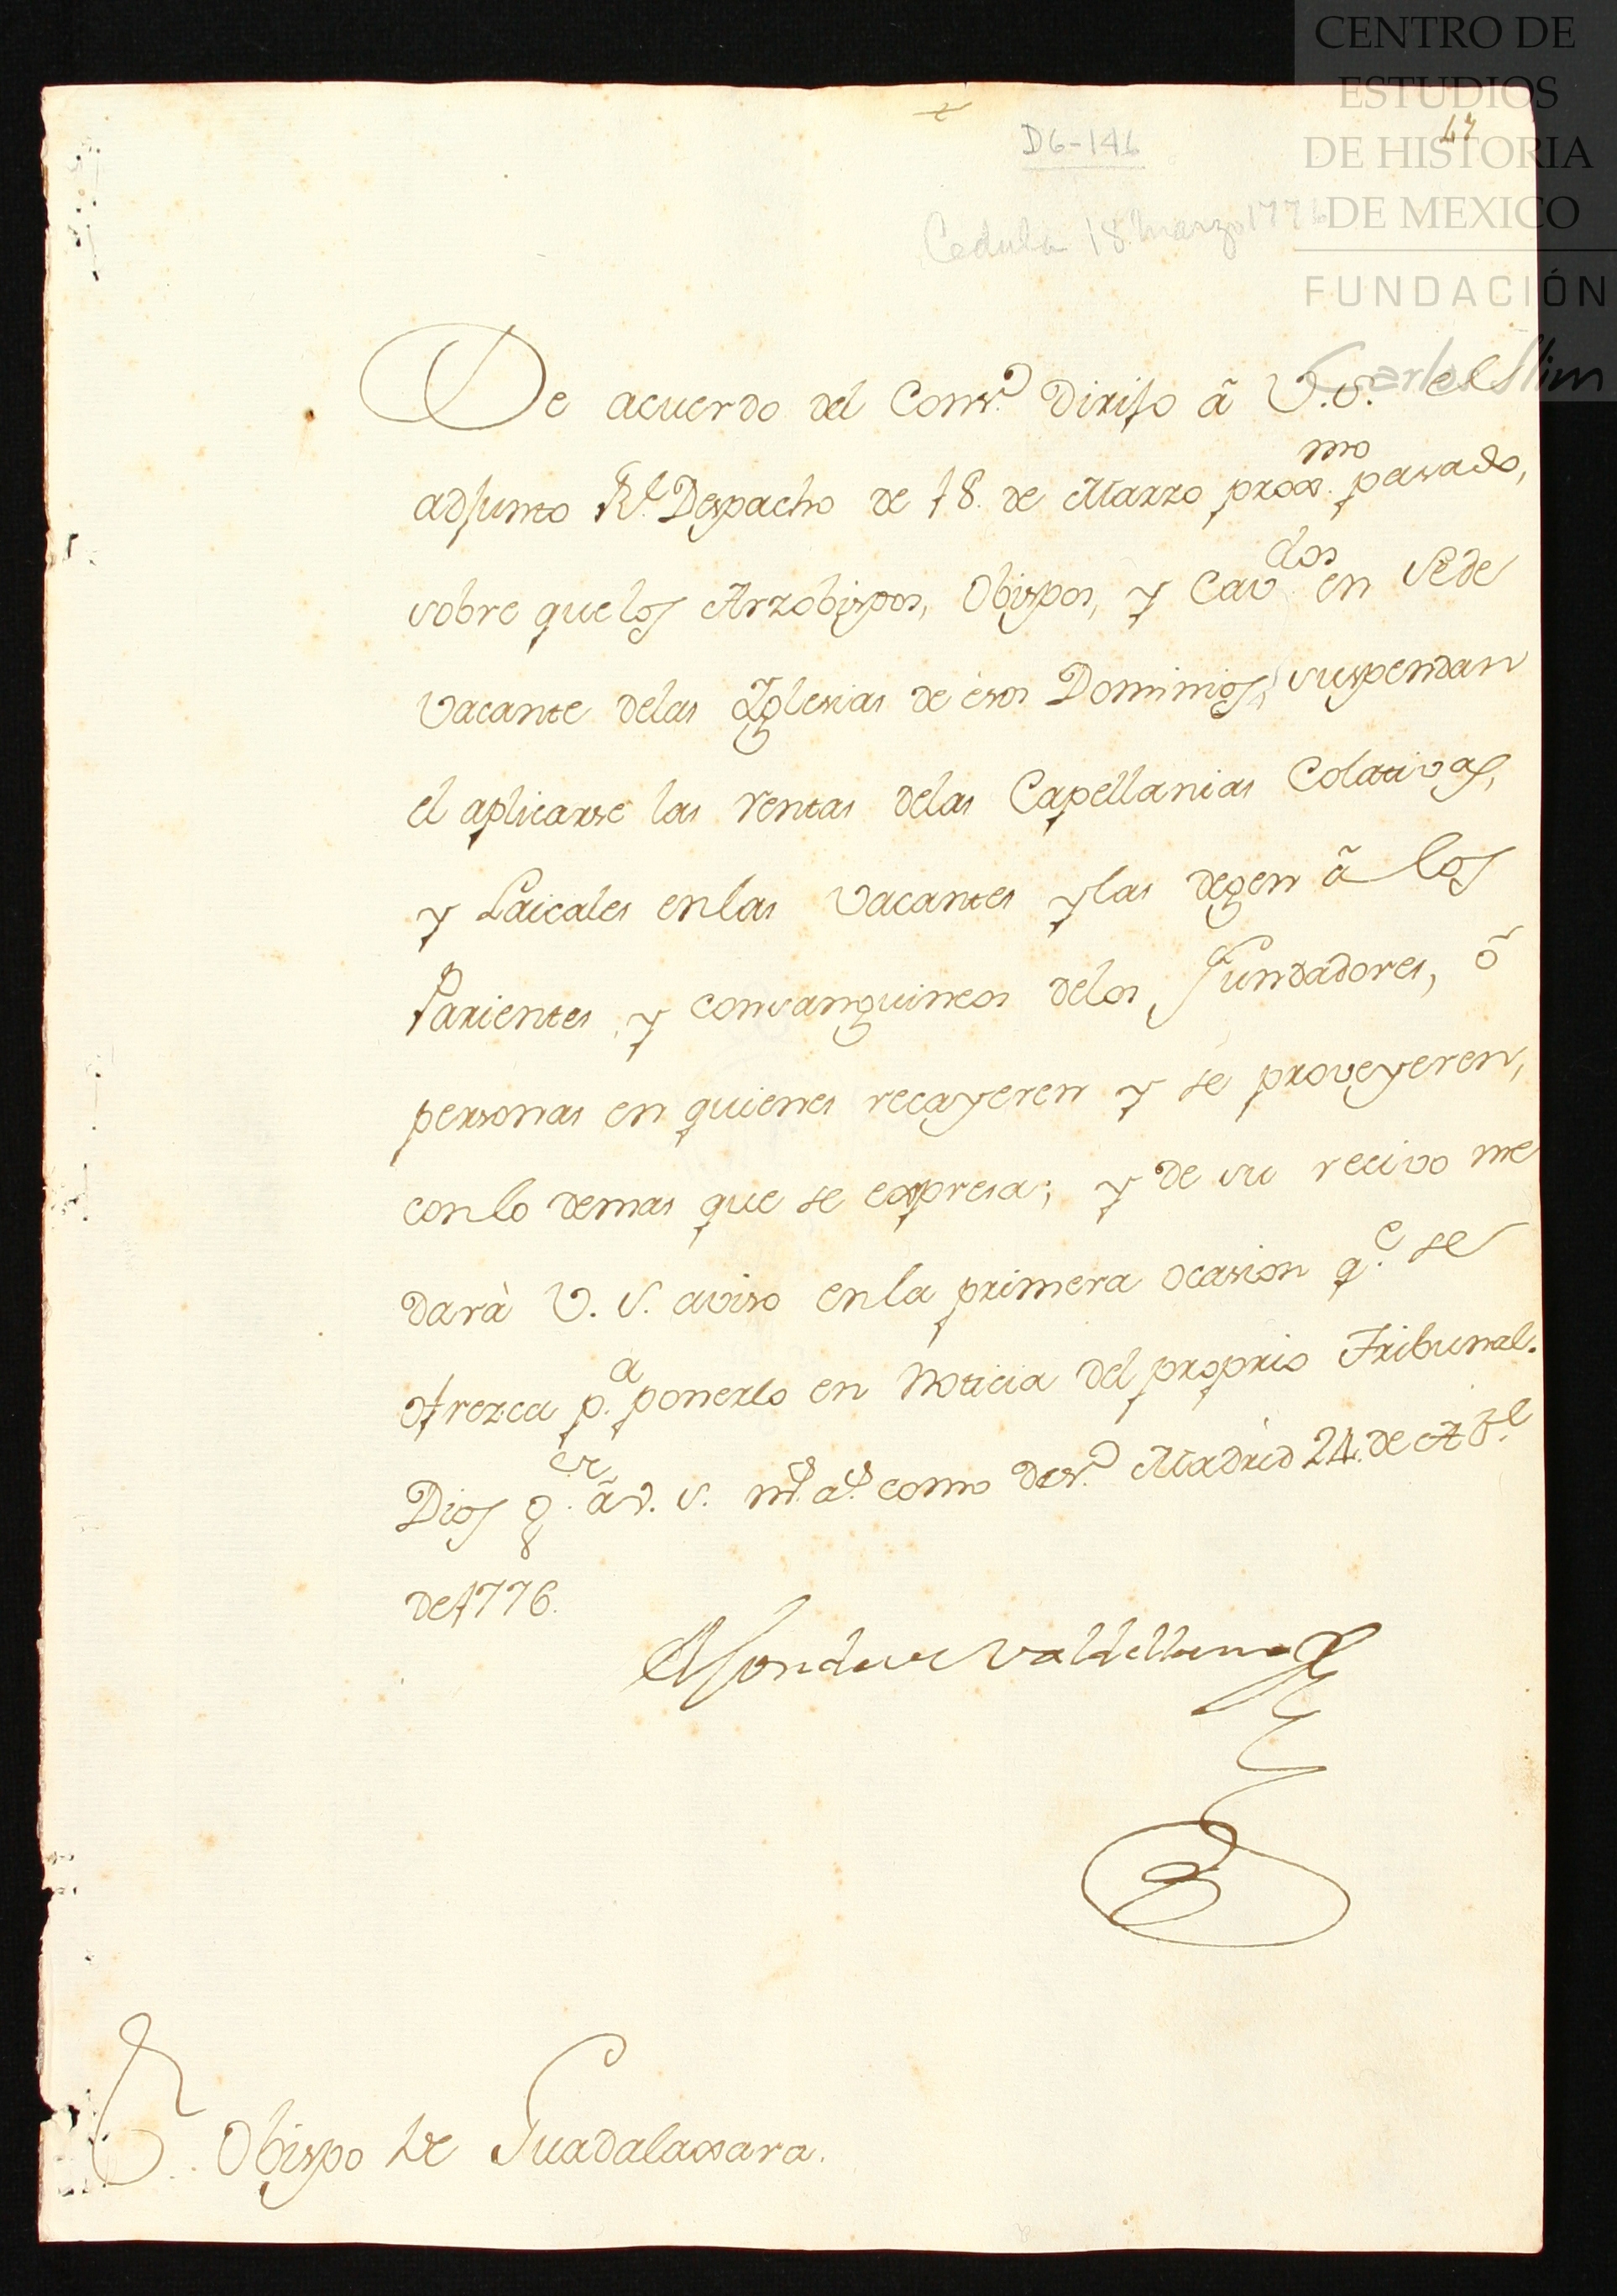 CENTRO DE
ESTUDIOS
DE HISTORIA
DE MEXICO
FUNDACIÓN
Carlos Slim
47
D6-146
Cedula 18 marzo 1776
De acuerdo del Cons.º dirijo â V.S. el
adjunto R.l Despacho de 18. de Marzo prox.mo pasado,
sobre que los Arzobispos, Obispos, y Cav.dos en Sede
vacante delas Yglesias de ésos Dominios, suspendan
el aplicarse las rentas delas Capellanias Colativas,
y Laicales enlas vacantes y las degen â los
Parientes, y consanguineos delos Fundadores, ô
personas en quienes recayeren y se proveyeren,
conlo demas que se expresa; y de su recivo me
darà V.S. aviso enla primera ocasion q.e se
ofrezca p.a ponerlo en noticia del proprio Tribunal.
Dios g.e â V.S. m.s a.s como des.º Madrid 24. de Ab.l
de 1776.
S.r Obispo de Guadalaxara.